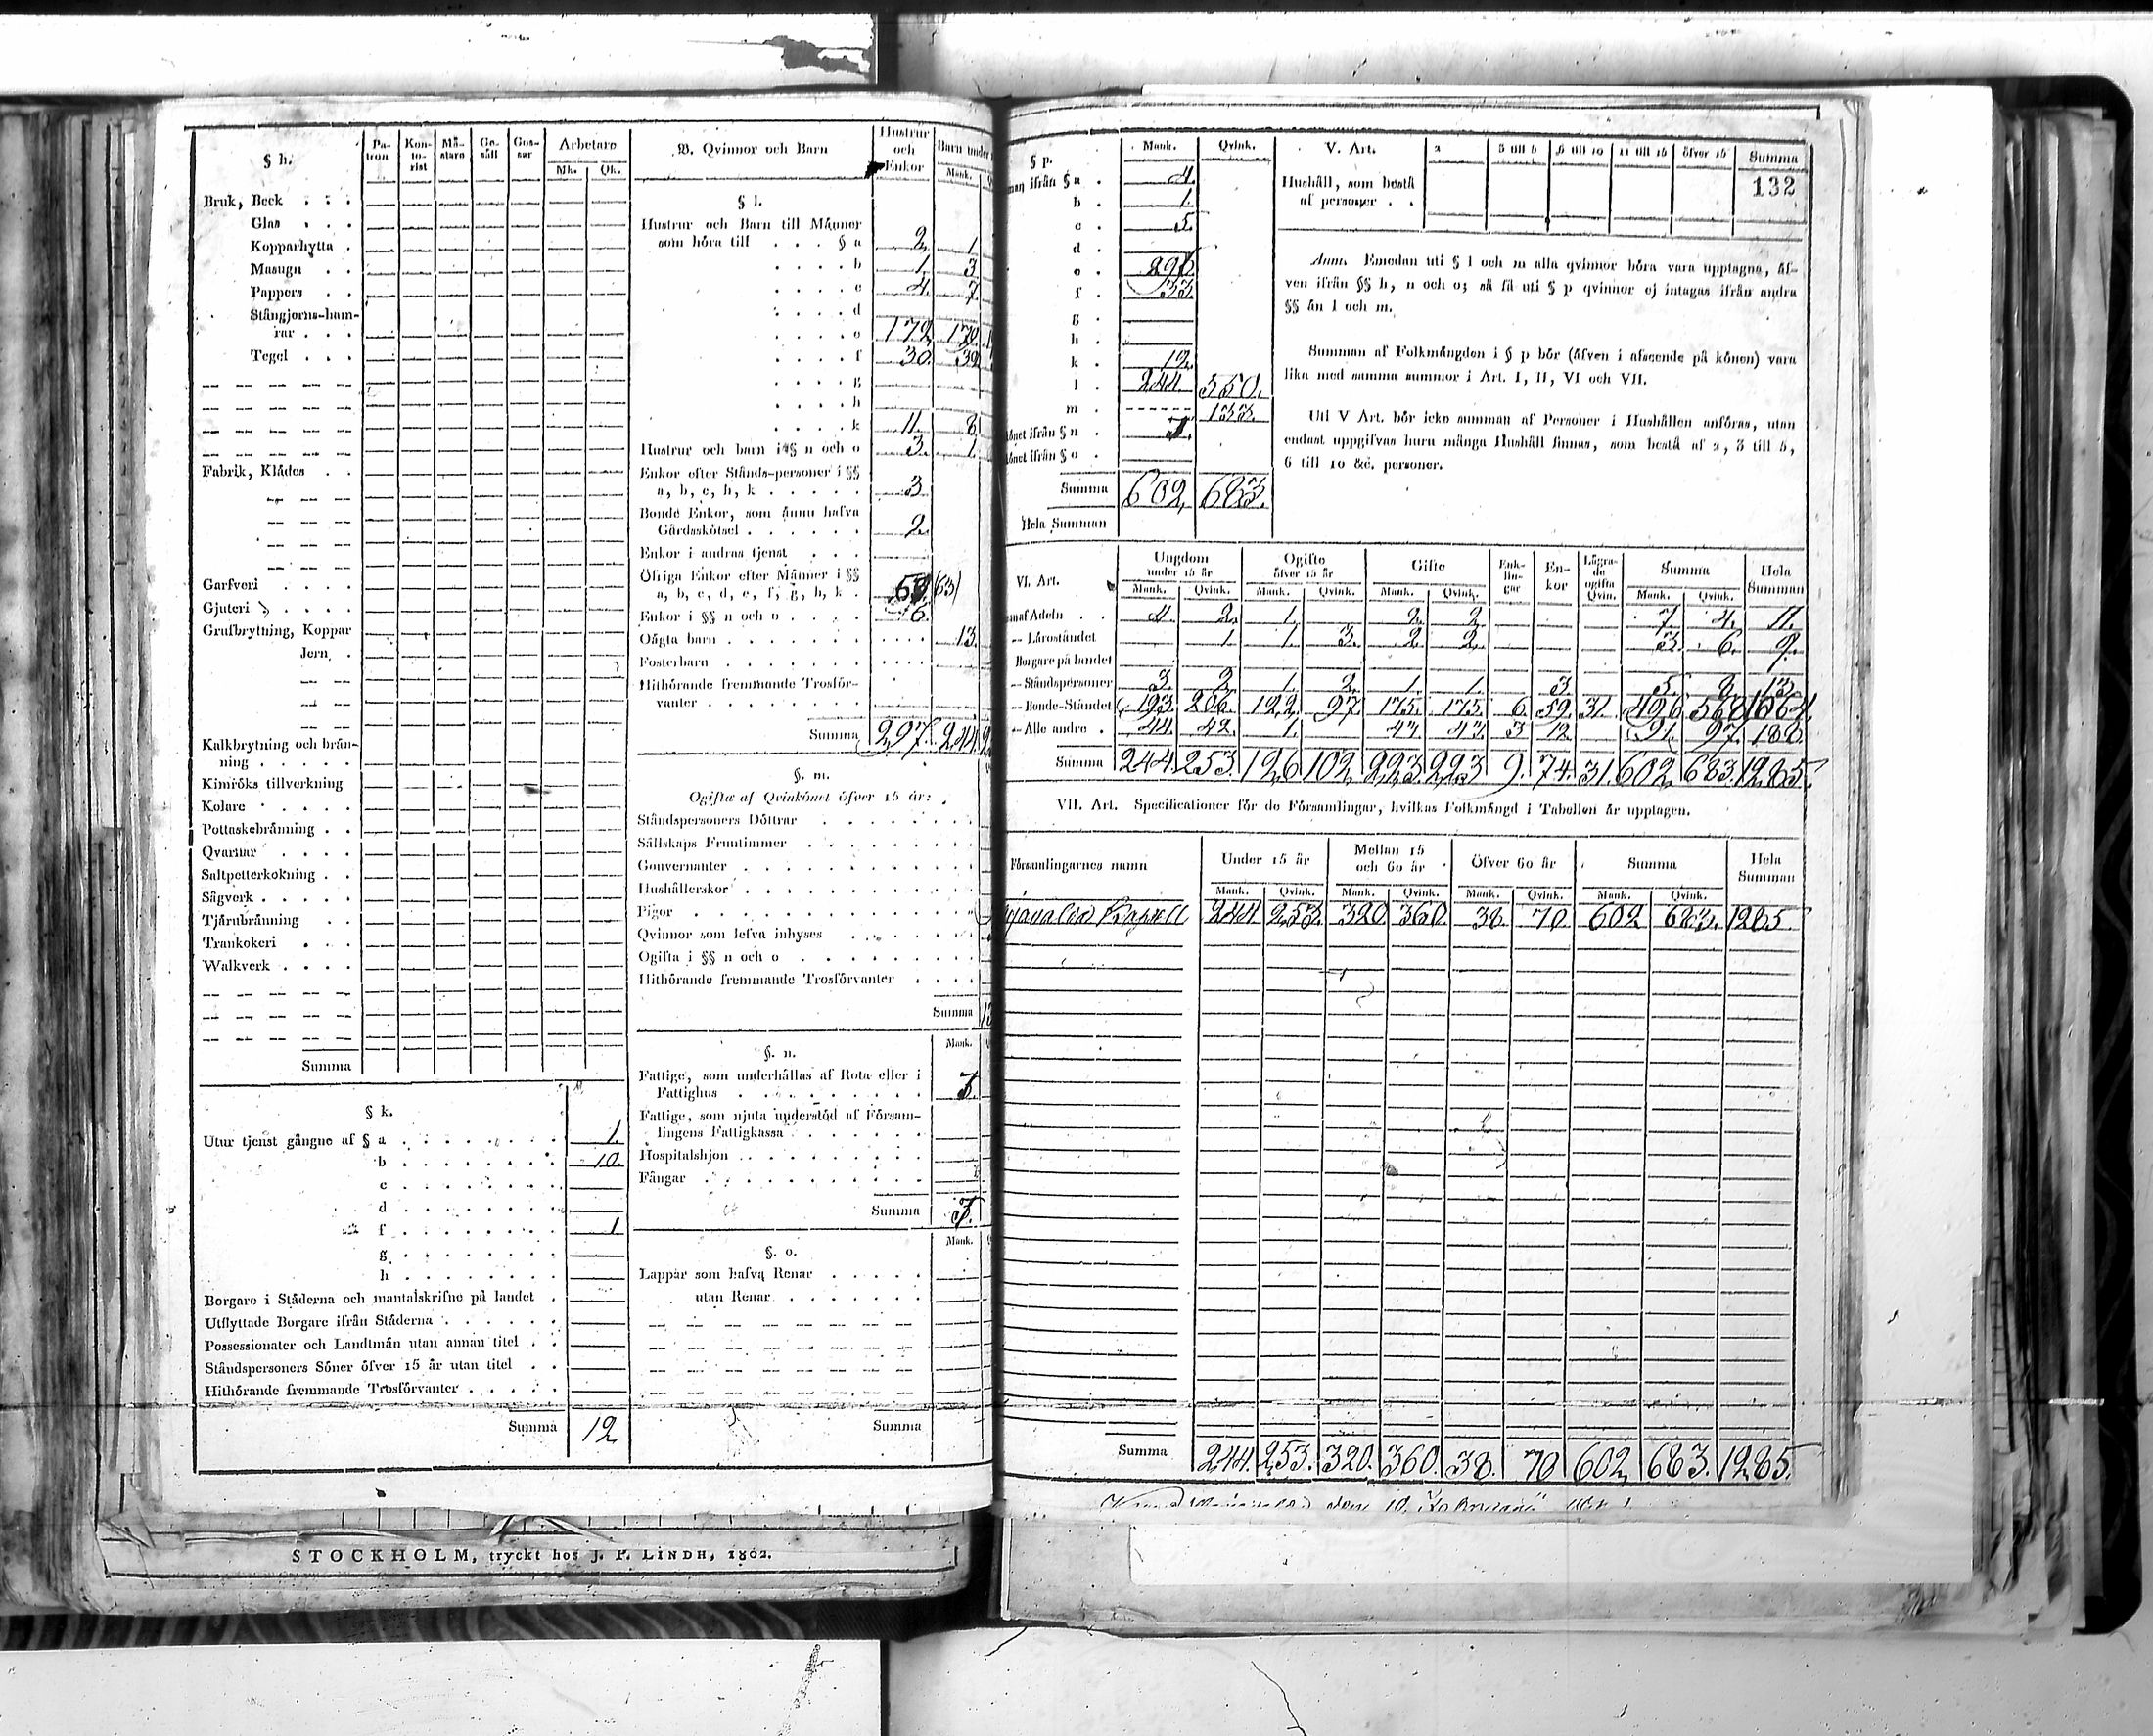 § h.
Pa-
tron
Kon-
to-
rist
Mä-
stare
Ge-
säll
Gos-
sar
Arbetare
Mk. Qk.
Bruk, Beck . . .
Glas . . .
Kopparhytta .
Masugn . .
Pappers . .
Stångjerns-ham-
rar . . .
Tegel . . .
Fabrik, Klådes . .
Garfveri . . . .
Gjuteri . . . .
Grufbrytning, Koppar
Jern .
Kalkbrytning och brän-
ning . . . . .
Kimröks tillverkning
Kolare . . . . .
Pottaskebränning . .
Qvarnar . . . .
Saltpetterkokning . .
Sågverk . . . . .
Tjärubränning . .
Trankokeri . . .
Walkverk . . . .
Summa
§ k.
Utur tjenst gångne af § a . . . . . . . 1.
b . . . . . . . . 10.
c . . . . . . . .
d . . . . . . . .
f . . . . . . . . 1
g . . . . . . . .
h . . . . . . . .
Borgare i Städerna och mantalskrifne på landet .
Utflyttade Borgare ifrån Städerna . . . . . .
Possessionater och Landtmän utan annan titel . .
Ståndspersoners Söner öfver 15 år utan titel . .
Hithörande fremmande Trosförvanter . . . . .
Summa 12
B. Qvinnor och Barn
Hustrur
och
Enkor
Barn under
Mank.
§ l.
Hustrur och Barn till Männer
som höra till . . . § a 2 1
. . . . b 1 3
. . . . c 4. 7.
. . . . d
. . . . e 172 179
. . . . f 30. 32
. . . . g
. . . . h
. . . . k 11. 8
Hustrur och barn i §§ n och o 3. 1.
Enkor efter Stånds-personer i §§
a, b, c, h, k . . . . . 3
Bonde Enkor, som ännu hafva
Gårdsskötsel . . . . . . 2.
Enkor i andras tjenst . . .
Öfriga Enkor efter Männer i §§
a, b, c, d, e, f, g, h, k . (63)
Enkor i §§ n och o . . . . . 6.
Oägta barn . . . . . . . . . . . 13.
Fosterbarn . . . . . . . . . . .
Hithörande fremmande Trosför-
vanter . . . . . . . .
Summa 297. 244
§. m.
Ogifta af Qvinkönet öfver 15 år:
Ståndspersoners Döttrar . . . . . . . .
Sällskaps Fruntimmer . . . . . . . . .
Gouvernanter . . . . . . . . . . . .
Hushållerskor . . . . . . . . . . . .
Pigor . . . . . . . . . . . . . .
Qvinnor som lefva inhyses . . . . . . .
Ogifta i §§ n och o . . . . . . . . .
Hithörande fremmande Trosförvanter . . . .
Summa
Mank.
§. n.
Fattige, som underhållas af Rota eller i
Fattighus . . . . . . . . .
Fattige, som njuta understöd af Försam-
lingens Fattigkassa . . . . . .
Hospitalshjon . . . . . . . . .
Fångar . . . . . . . . . . .
Summa
Mank.
§. o.
Lappar som hafva Renar . . . . .
utan Renar . . . . . . .
Summa
STOCKHOLM, tryckt hos J. P. LINDH, 1802.
§ p.
Mank. Qvink.
ifrån § a . 4.
b . 1.
c . 5.
d .
e .
f . 33.
g .
h .
k . 12.
l . 244 550.
m . 133.
ifrån § n .
ifrån § o .
Summa 602, 683.
Hela Summan
V. Art. 2 3 till 5 6 till 10 11 till 15 öfver 15 Summa
132
Hushåll, som bestå
af personer . .
Anm. Emedan uti § l och m alla qvinnor böra vara upptagne, äf-
ven ifrån §§ h, n och o; så få uti § p qvinnor ej intagas ifrån andra
§§ än l och m.
Summan af Folkmängden i § p bör (äfven i afseende på könen) vara
lika med samma summor i Art. I, II, VI och VII.
Uti V Art. bör icke summan af Personer i Hushållen anföras, utan
endast uppgifvas huru många Hushåll finnas, som bestå af 2, 3 till 5,
6 till 10 &c. personer.
VI. Art.
Ungdom
under 15 år
Ogifte
öfver 15 år
Gifte
Enk-
lin-
gar
En-
kor
Lägra-
de
ogifta
Qvin.
Summa
Hela
Summan
Mank. Qvink. Mank. Qvink. Mank. Qvink. Mank. Qvink.
af Adeln . . 4 2. 1. 2 2 7. 4. 11.
— Läroståndet 1 1. 3. 2 2. 3. 6. 9.
Borgare på landet
— Ståndspersoner 3. 2 1. 2. 1. 1. 3 5. 8 13
— Bonde-Ståndet 193. 206. 122 97 175. 175. 6. 59. 31. 496 568 1064.
— Alle andre . 44. 42. 1. 43. 43. 3 12 91. 97. 188
Summa 244. 253. 126 102 223. 223 9. 74. 31. 602, 683. 1285.
VII. Art. Specificationer för de Församlingar, hvilkas Folkmängd i Tabellen är upptagen.
Församlingarnes namn
Under 15 år
Mellan 15
och 60 år
Öfver 60 år
Summa
Hela
Summan
Mank. Qvink. Mank. Qvink. Mank. Qvink. Mank. Qvink.
Kappell 244 253. 320 360. 38. 70. 602 683. 1285.
Summa 244. 253. 320. 360. 38. 70 602, 683. 1285.
den 10.